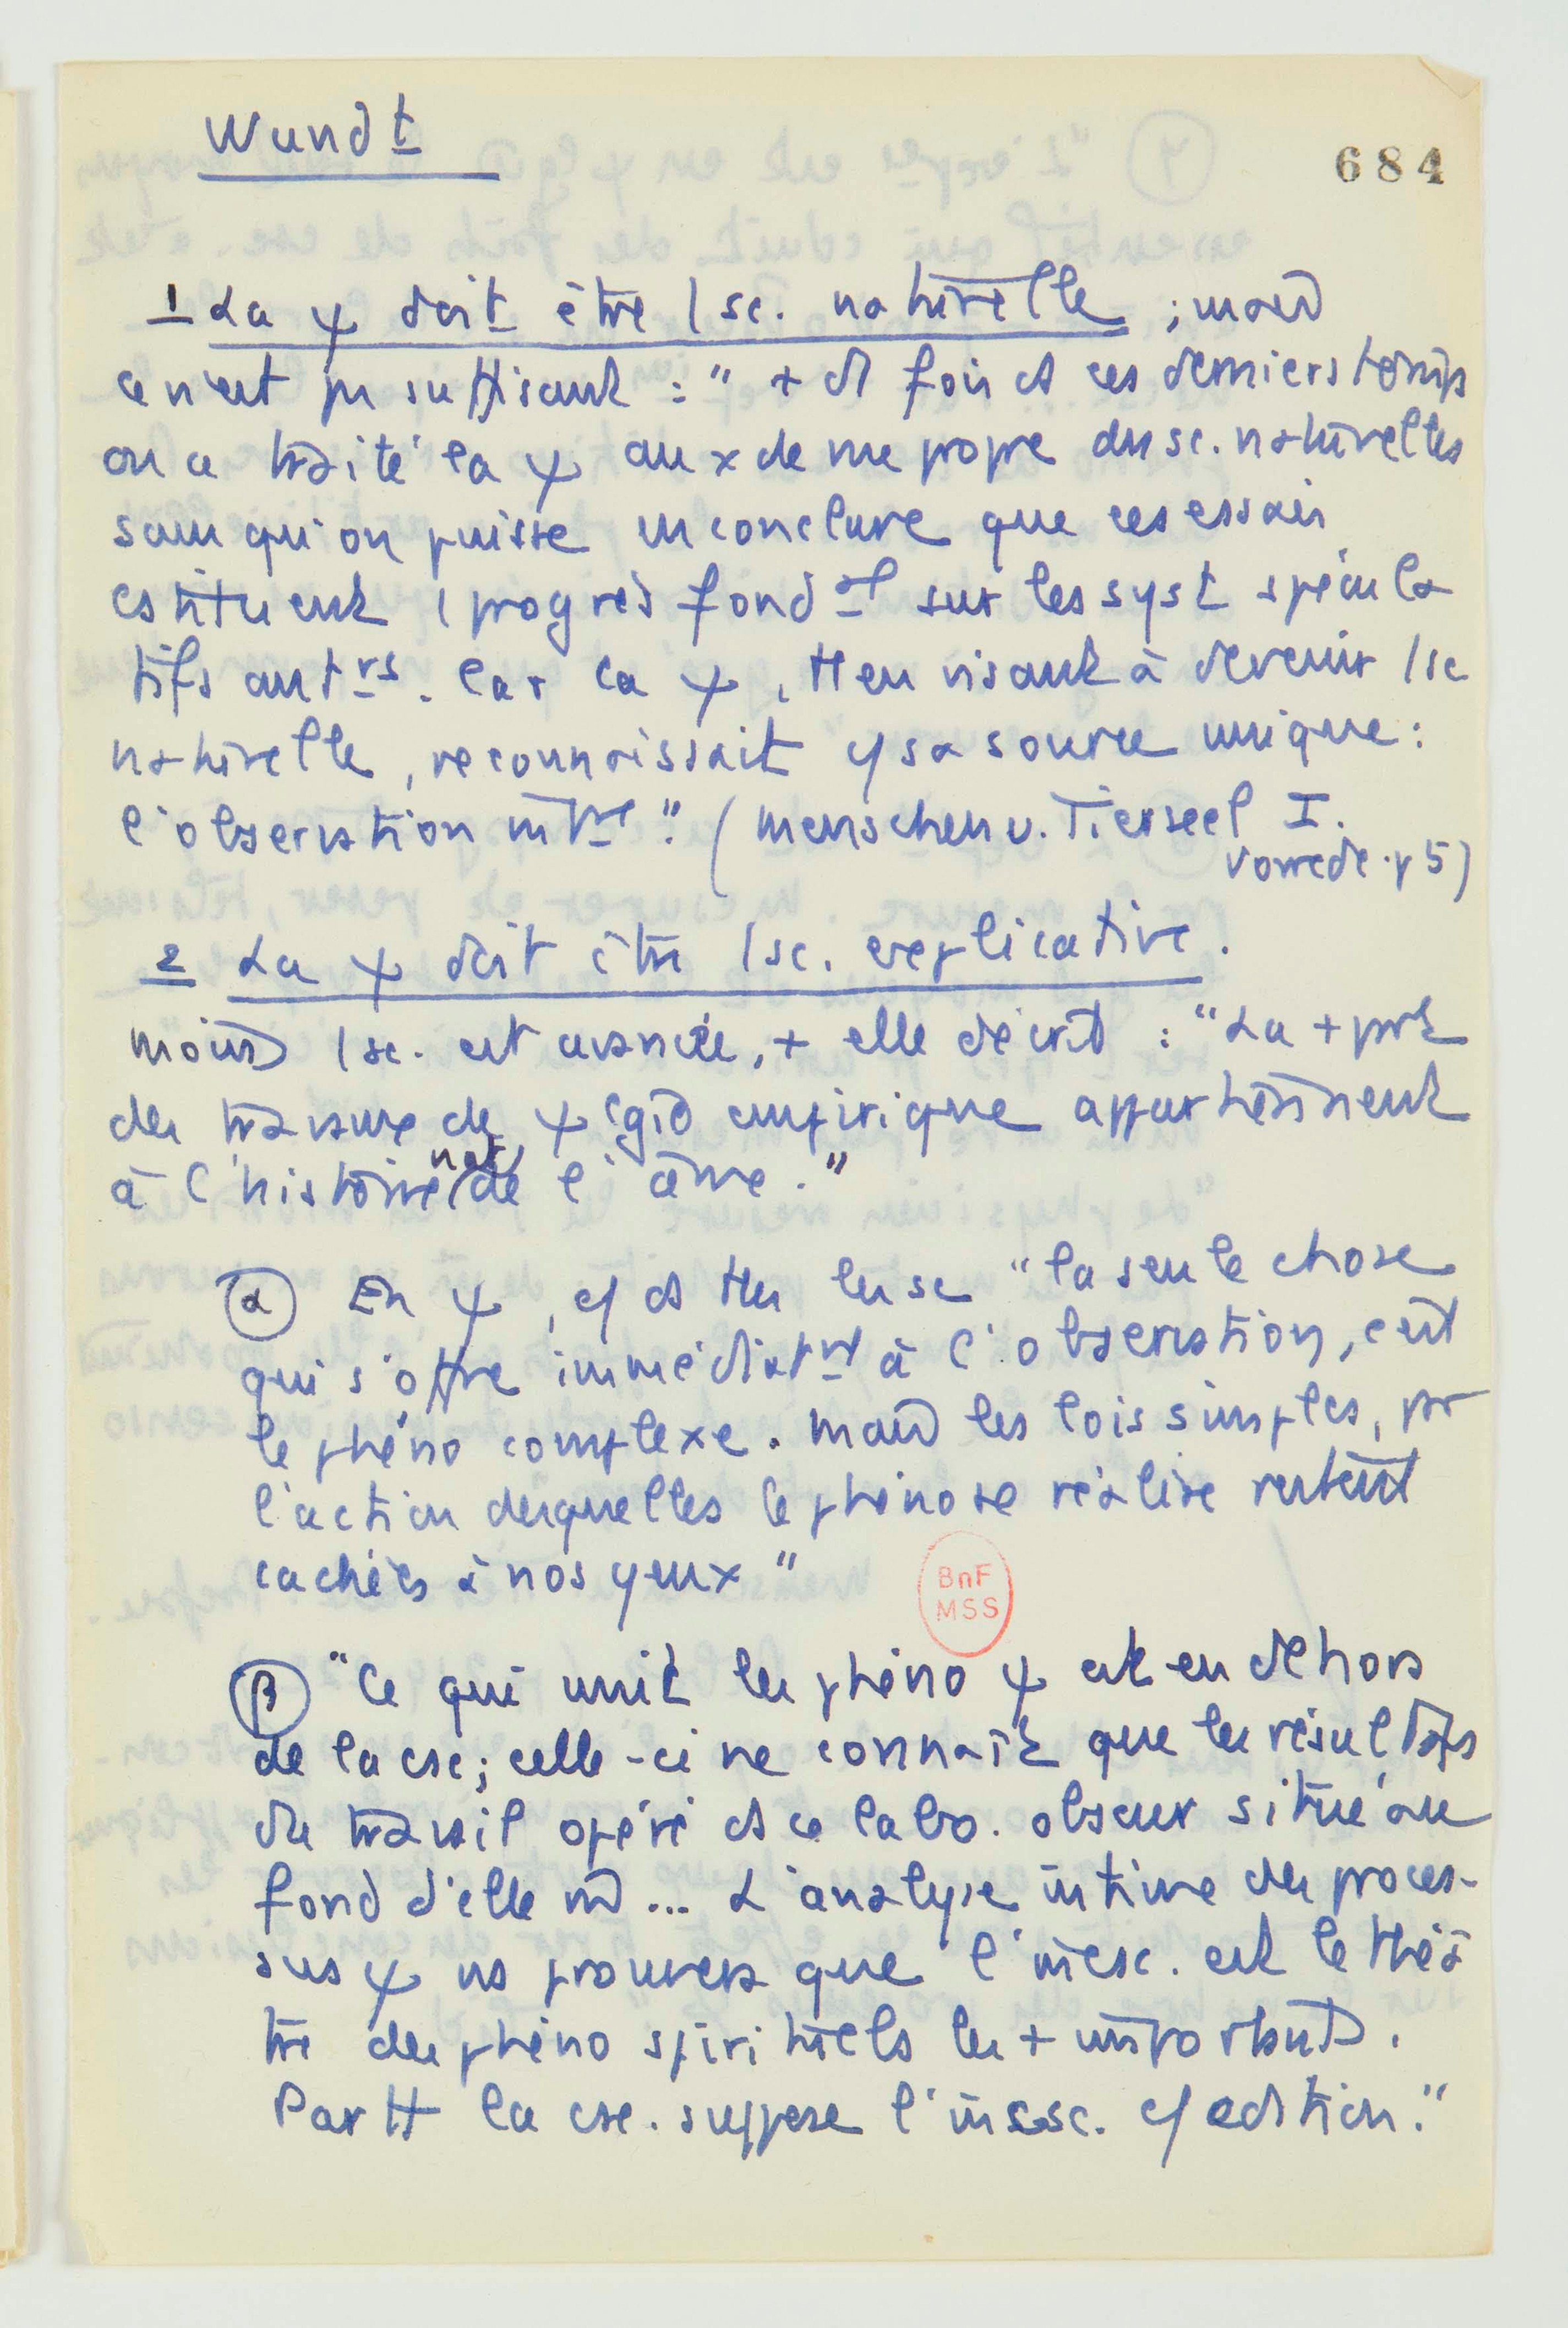 Wundt
684
1 La ψ doit être 1 sc. naturelle ; mais
ce n'est pas suffisant : " + ds fois ds ces derniers temps
on a traité la ψ au x de vue propre des sc. naturelles
sans qu'on puisse en conclure que ces essais
cstituent 1 progrès fondal sur les syst spécula
tifs antrs. Car la ψ, tt en visant à devenir 1 sc
naturelle, reconnaissait c/ sa source unique :
l'observation intre." (Menschen u. Tierseel I.
Vorrede. p 5)
2 La ψ doit être 1 sc. explicative.
moins 1 sc. est avancée, + elle décrit : "La + part
des travaux de ψlgie empirique appartiennent
à l'histoire nat. de l'âme."
α En ψ, c/ ds ttes les sc "la seule chose
qui s'offre immédiatnt à l'observation, c'est
le phéno complexe. Mais les lois simples, par
l'action desquelles le phéno se réalise restent
cachées à nos yeux"
BnF
MSS
β "Ce qui unit les phéno ψ est en dehors
de la csc; celle-ci ne connaît que les résultats
du travail opéré ds ce labo. obscur situé au
fond d'elle m̂ ... L'analyse intime des proces-
sus ψ ns prouvera que l'incsc. est le théâ
tre des phéno spirituels les + importants.
Partt la csc. suppose l'incsc. c/ cdition."